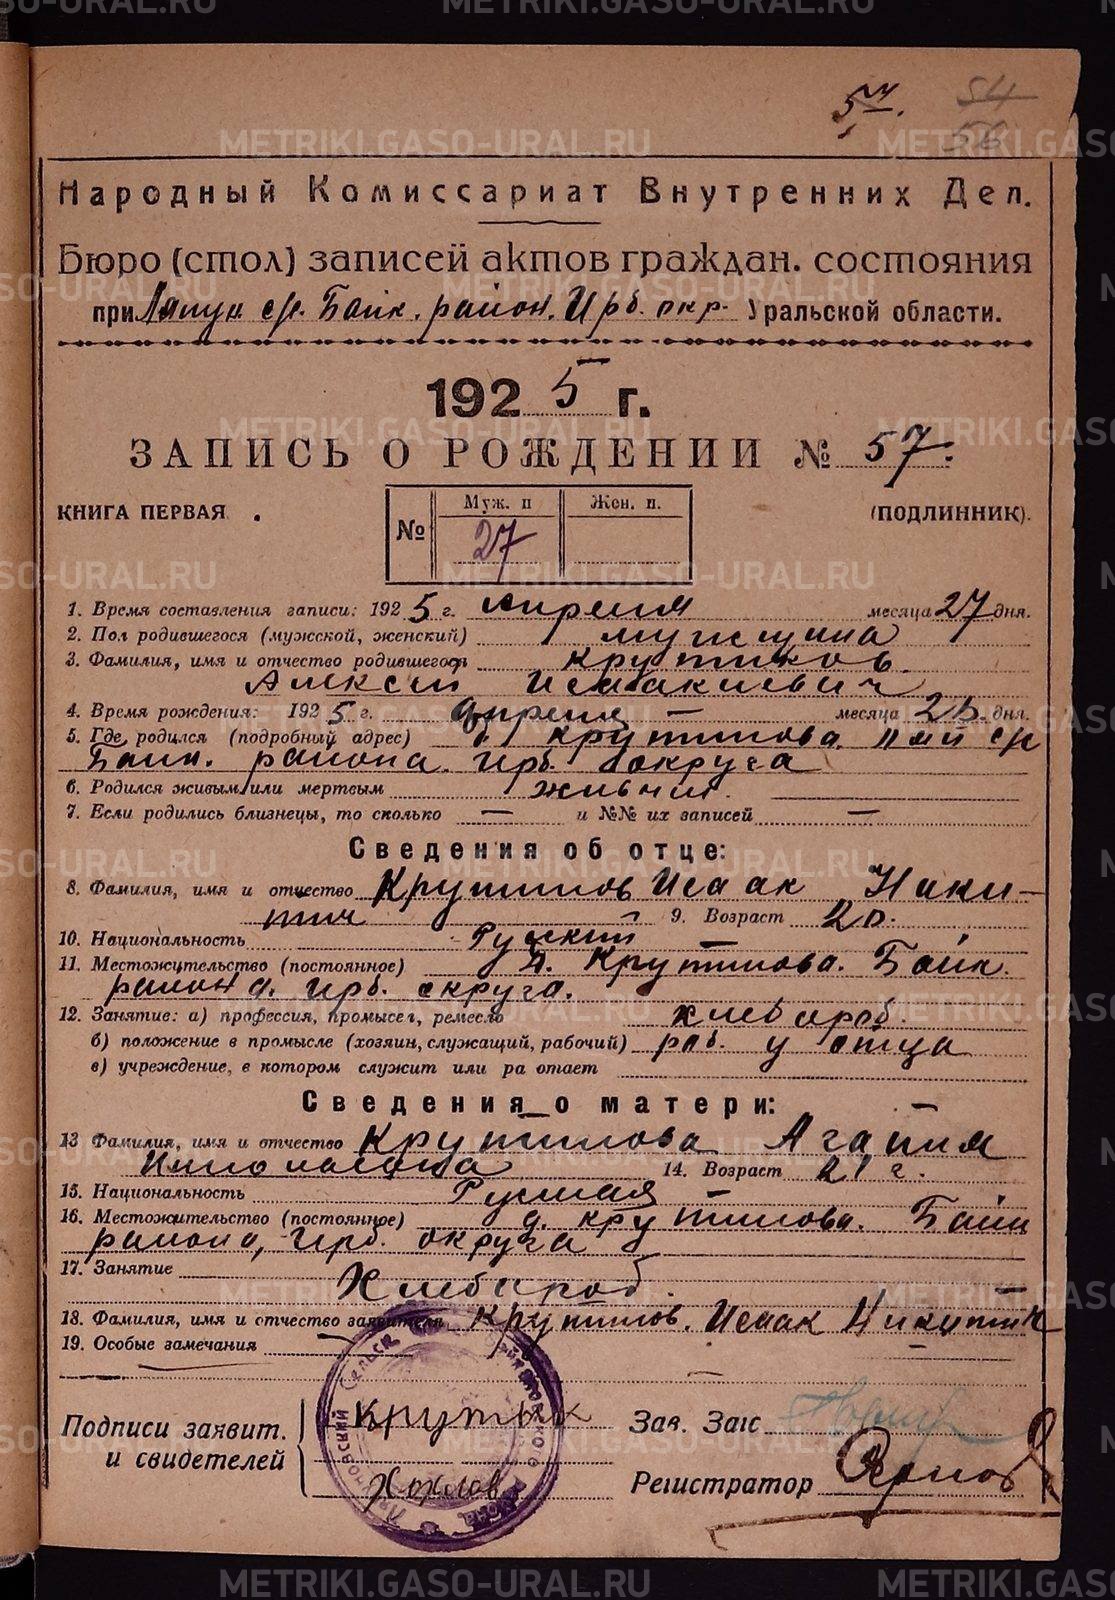 54.
54
56
Народный Комиссариат Внутренних Дел.
Бюро (стол) записей актов граждан. состояния
при с/с. Байк. район. Ирб. окр. Уральской области.
1925 г.
ЗАПИСЬ О РОЖДЕНИИ № 57.
КНИГА ПЕРВАЯ.
№ Муж. п Жен. п.
27
(ПОДЛИННИК).
1. Время составления записи: 1925 г. Апреля месяца 27 дня.
2. Пол родившегося (мужской, женский) мужщина
3. Фамилия, имя и отчество родившегося Крутиков.
Алексей Исаакиевич
4. Время рождения: 1925 г. апреля — месяца 25. дня.
5. Где родился (подробный адрес) д. Крутикова с/с
Байк. района. Ирб. округа
6. Родился живым или мертвым живым.
7. Если родились близнецы, то сколько — и №№ их записей —
Сведения об отце:
8. Фамилия, имя и отчество Крутиков Исаак Ники-
тич 9. Возраст 20.
10. Национальность Руский —
11. Местожительство (постоянное) д. Крутикова. Байк.
района. Ирб. округа.
12. Занятие: а) профессия, промысел, ремесло хлебороб.
б) положение в промысле (хозяин, служащий, рабочий) раб. у отца
в) учреждение, в котором служит или ра отает
Сведения о матери:
13 Фамилия, имя и отчество Крутикова Агапия
14. Возраст 21 г.
15. Национальность Руская —
16. Местожительство (постоянное) д. Крутикова. Байк
района, Ирб. округа
17. Занятие Хлебороб.
18. Фамилия, имя и отчество заявителя Крутиков. Исаак Никитич
19. Особые замечания —
Подписи заявит.
и свидетелей
Крутик
Хохлов
Зав. Загс
Регистратор
METRIKI.GASO-URAL.RU